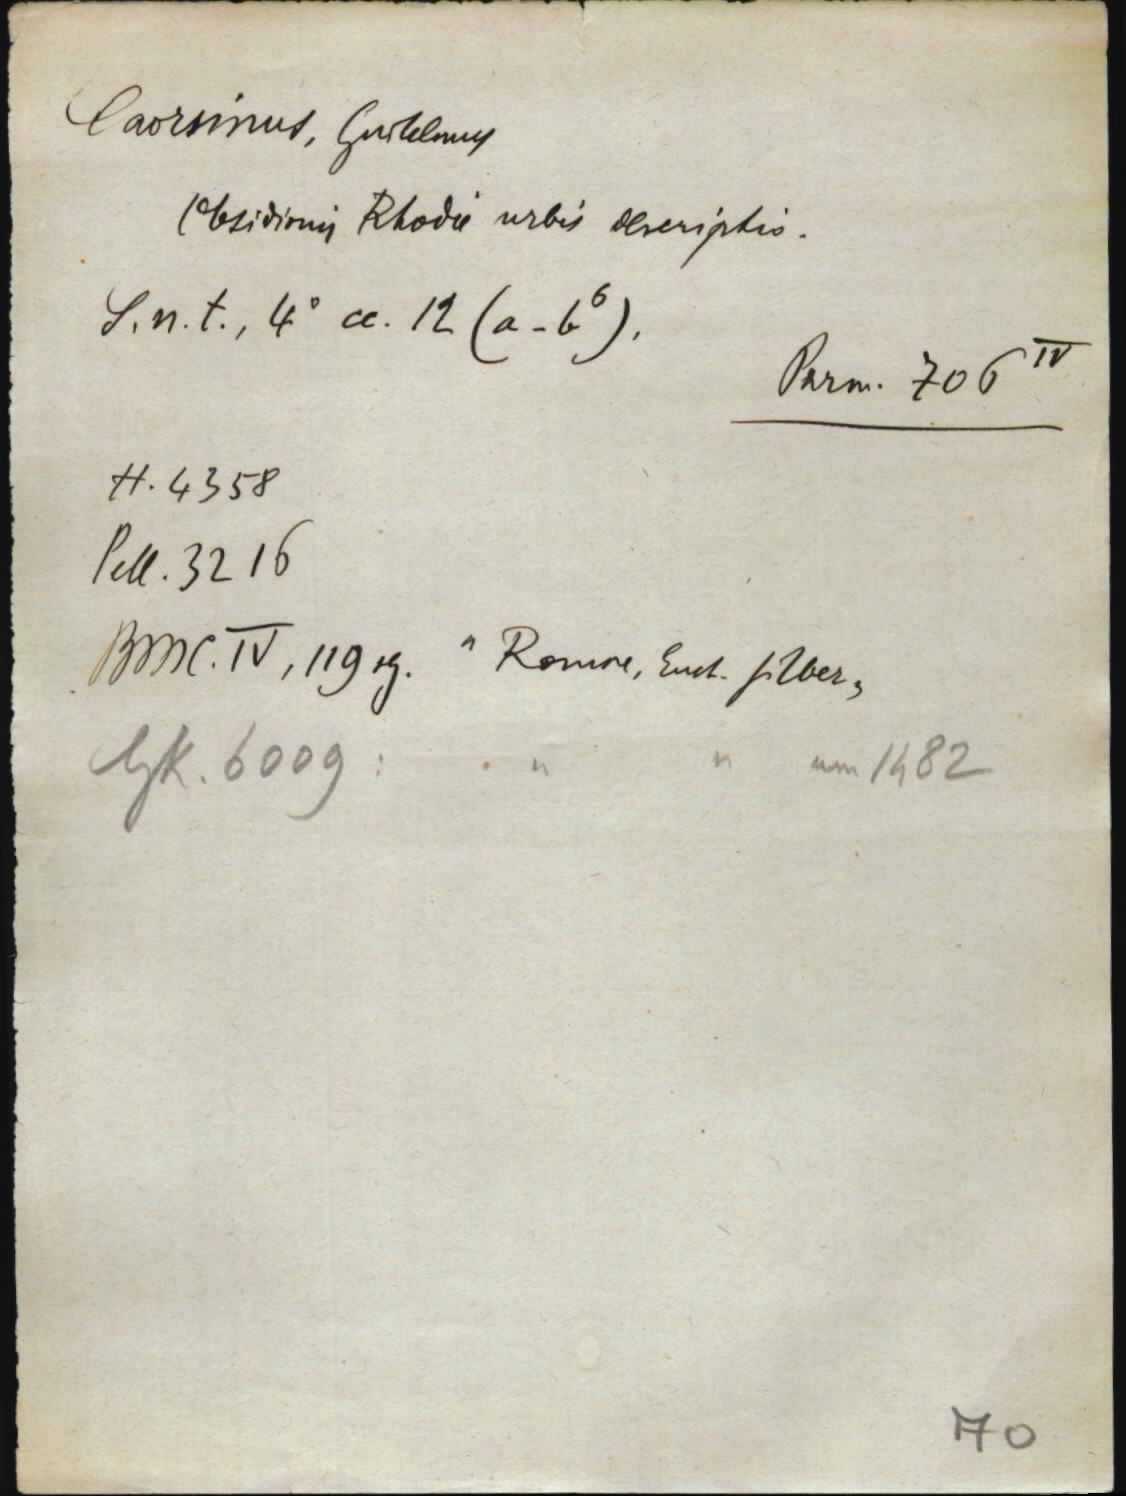 Caorsinus, Guilelmus
Obsidionis Rhodie urbis descriptio.
S.n.t., 4° cc. 12 (a-b⁶).
Parm. 706 IV
H. 4358
Pell. 3216
BMC. IV, 119 sg. " Romae, Euch. Silber„
Gk. 6009: " " um 1482
70